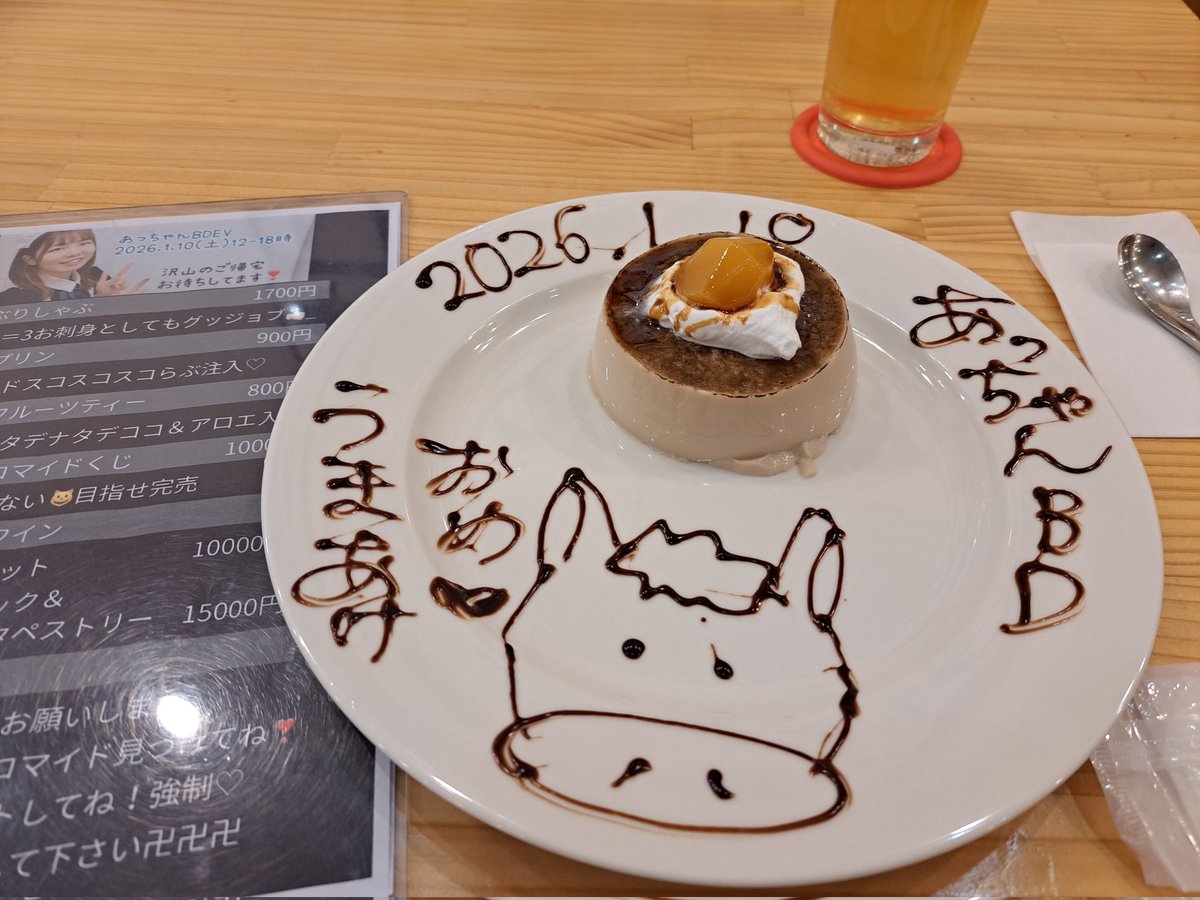 あっちゃんBDEV
2026.1.10(土)12-18時
沢山のご帰宅
お待ちしてます❣
ぶりしゃぶ 1700円
=3お刺身としてもグッジョブ
プリン 900円
ドスコスコスコらぶ注入♡
フルーツティー 800
タデナタデココ&アロエ入
ロマイドくじ 1000
ない😺目指せ完売
ワイン
10000
ット
ック&
マペストリー 15000円
お願いしま
ロマイド見つけてね❣
トしてね!強制♡
して下さい卍卍卍
2026.1.10
あっちゃんBD
おめ♥
うまあけ